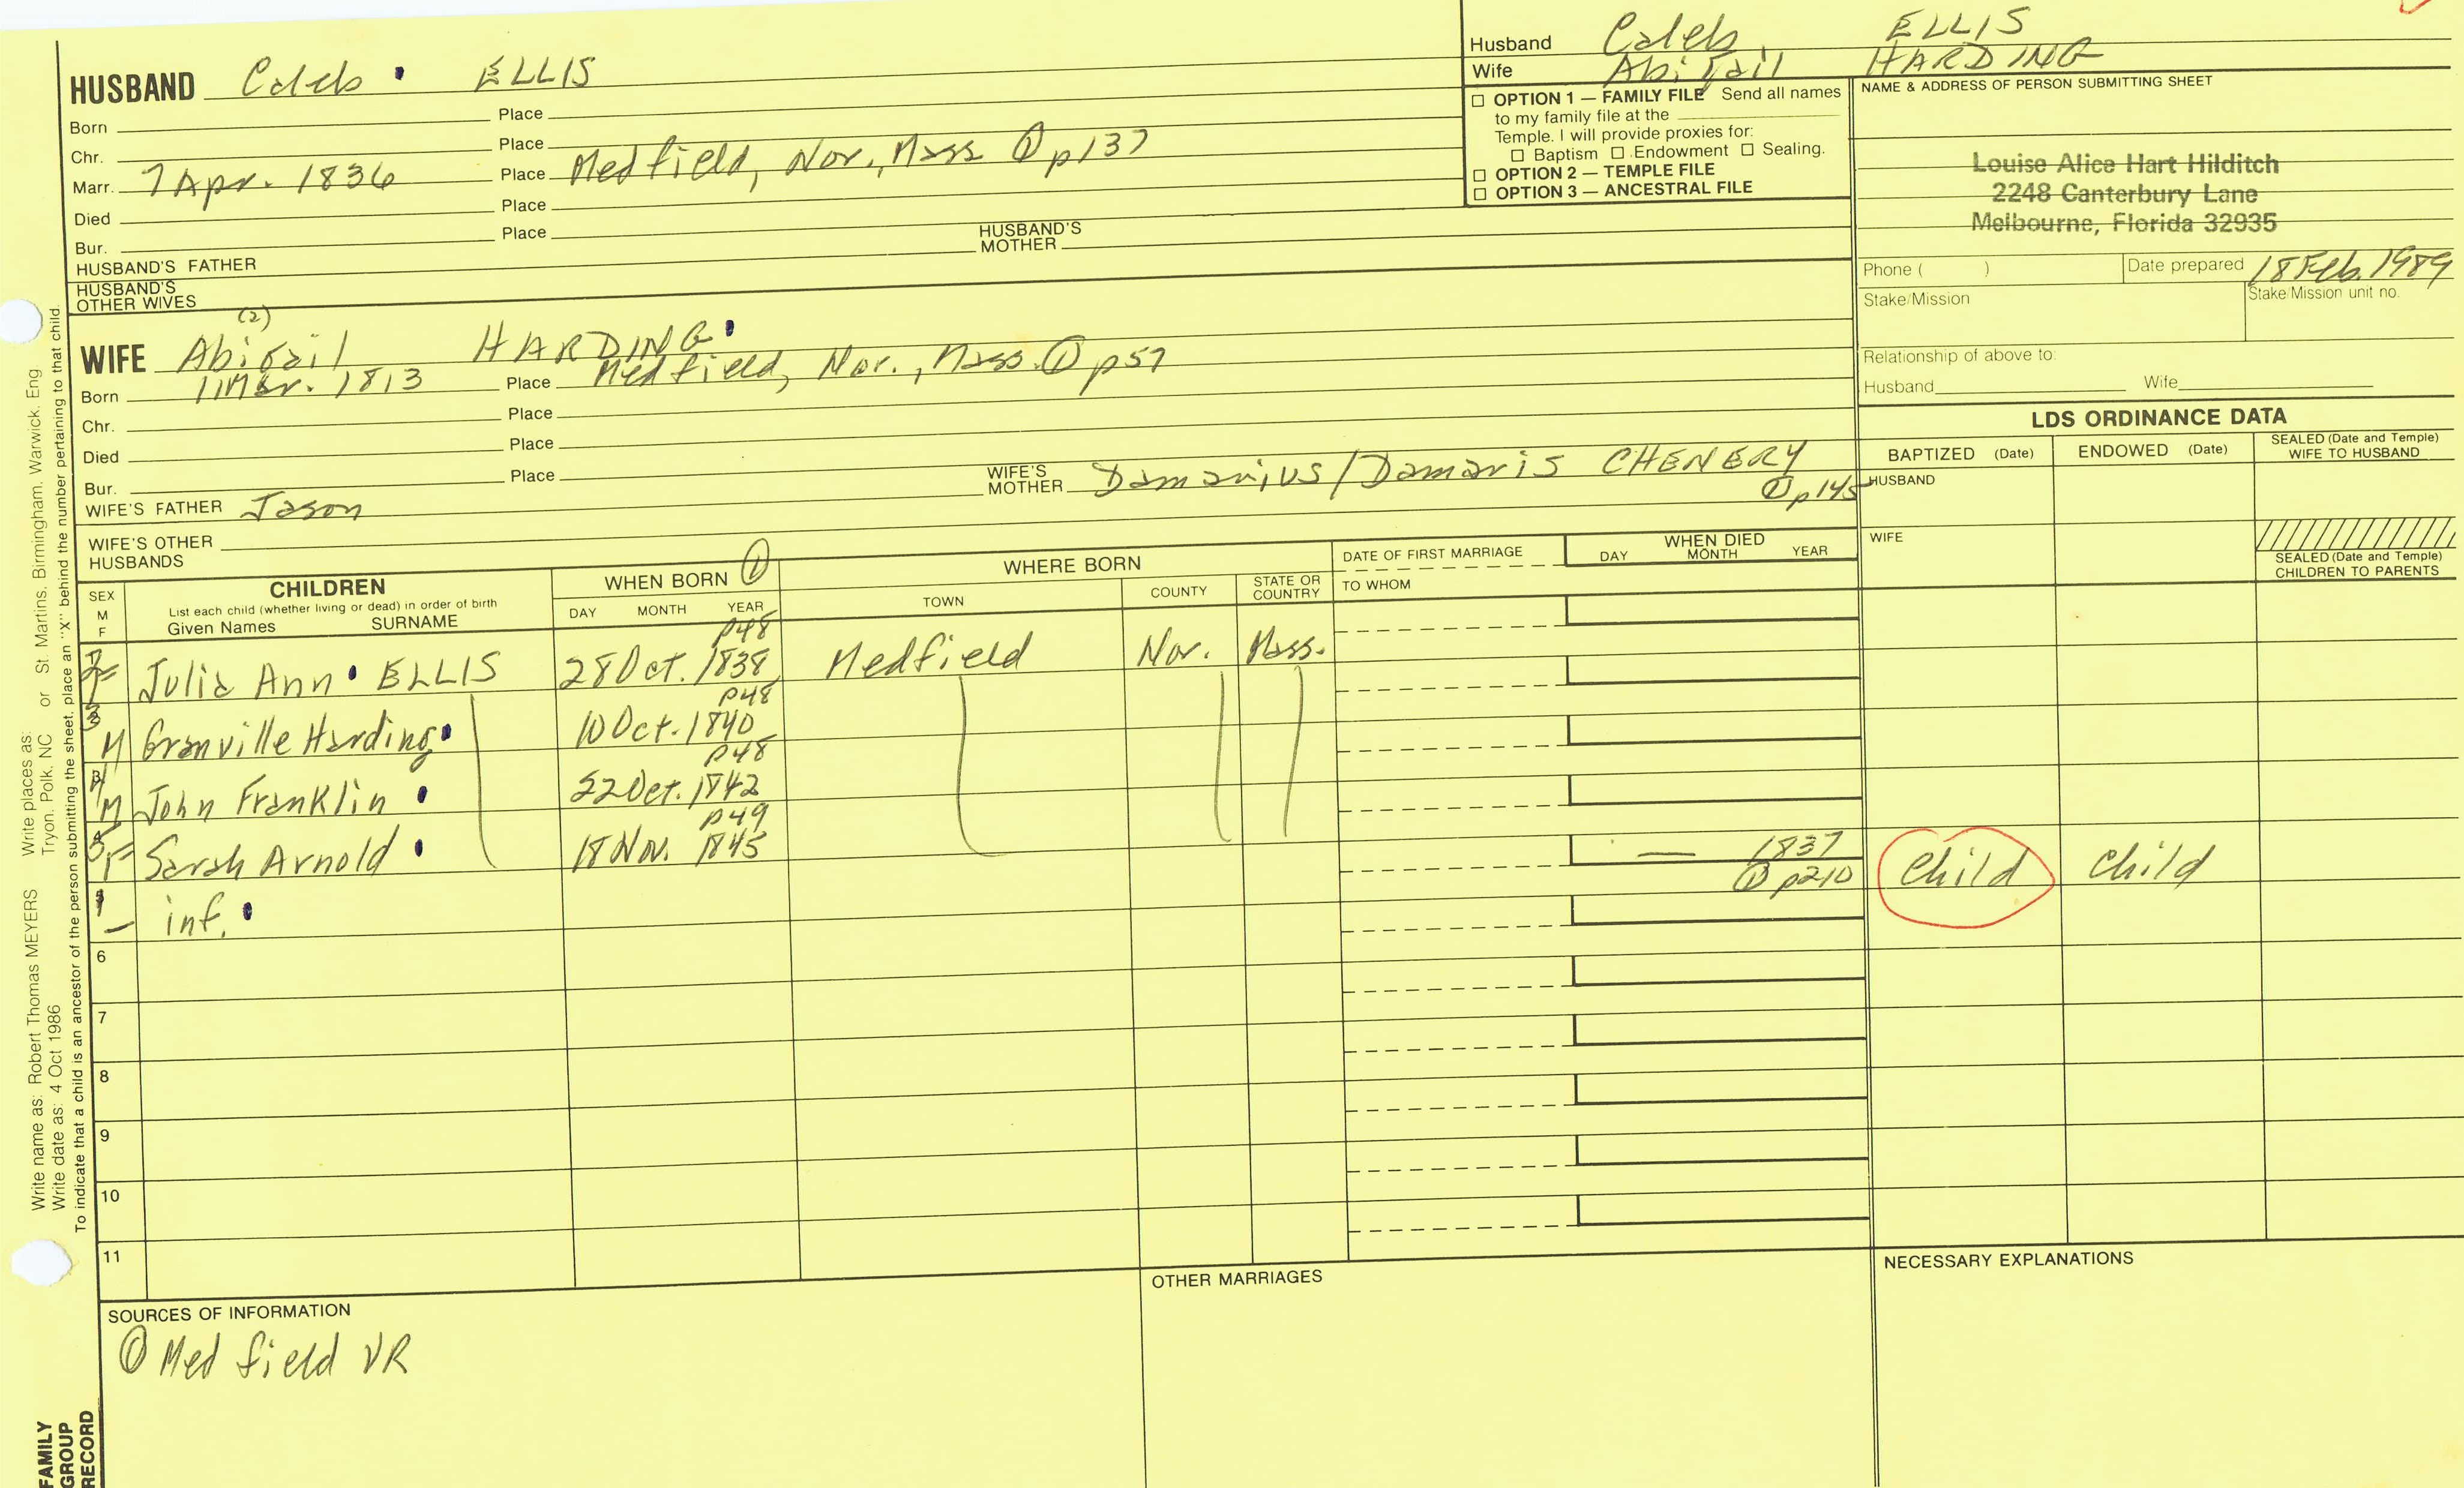 Husband Caleb ELLIS
Wife Abigail HARDING
HUSBAND Caleb ELLIS
Born Place
Chr. Place
Marr. 7 Apr. 1836 Place Medfield, Nor., Mass ① p137
Died Place
Bur. Place
HUSBAND'S FATHER HUSBAND'S MOTHER
HUSBAND'S OTHER WIVES
☐ OPTION 1 — FAMILY FILE Send all names
to my family file at the
Temple. I will provide proxies for:
☐ Baptism ☐ Endowment ☐ Sealing.
☐ OPTION 2 — TEMPLE FILE
☐ OPTION 3 — ANCESTRAL FILE
NAME & ADDRESS OF PERSON SUBMITTING SHEET
Louise Alice Hart Hilditch
2248 Canterbury Lane
Melbourne, Florida 32935
Phone ( ) Date prepared 18 Feb. 1989
Stake/Mission Stake/Mission unit no.
Relationship of above to:
Husband Wife
(2)
WIFE Abigail HARDING
Born 11 Mar. 1813 Place Medfield, Nor., Mass. ① p57
Chr. Place
Died Place
Bur. Place
WIFE'S FATHER Jason WIFE'S MOTHER Damarius/Damaris CHENERY
① p145
WIFE'S OTHER HUSBANDS
LDS ORDINANCE DATA
BAPTIZED (Date) ENDOWED (Date) SEALED (Date and Temple) WIFE TO HUSBAND
HUSBAND
WIFE
SEALED (Date and Temple) CHILDREN TO PARENTS
SEX M F
CHILDREN
List each child (whether living or dead) in order of birth
Given Names SURNAME
WHEN BORN ①
DAY MONTH YEAR
WHERE BORN
TOWN COUNTY STATE OR COUNTRY
DATE OF FIRST MARRIAGE
TO WHOM
WHEN DIED
DAY MONTH YEAR
p48
2 F Julia Ann ELLIS 28 Oct. 1838 Medfield Nor. Mass.
p48
3 M Granville Harding 10 Oct. 1840
p48
4 M John Franklin 22 Oct. 1842
p49
5 F Sarah Arnold 18 Nov. 1845
1 — inf. — 1837 Child Child
① p210
6
7
8
9
10
11
SOURCES OF INFORMATION
① Medfield VR
OTHER MARRIAGES
NECESSARY EXPLANATIONS
Write name as: Robert Thomas MEYERS Write places as: St. Martins, Birmingham, Warwick, Eng
Write date as: 4 Oct 1986 Tryon, Polk, NC or
To indicate that a child is an ancestor of the person submitting the sheet, place an "X" behind the number pertaining to that child.
FAMILY
GROUP
RECORD